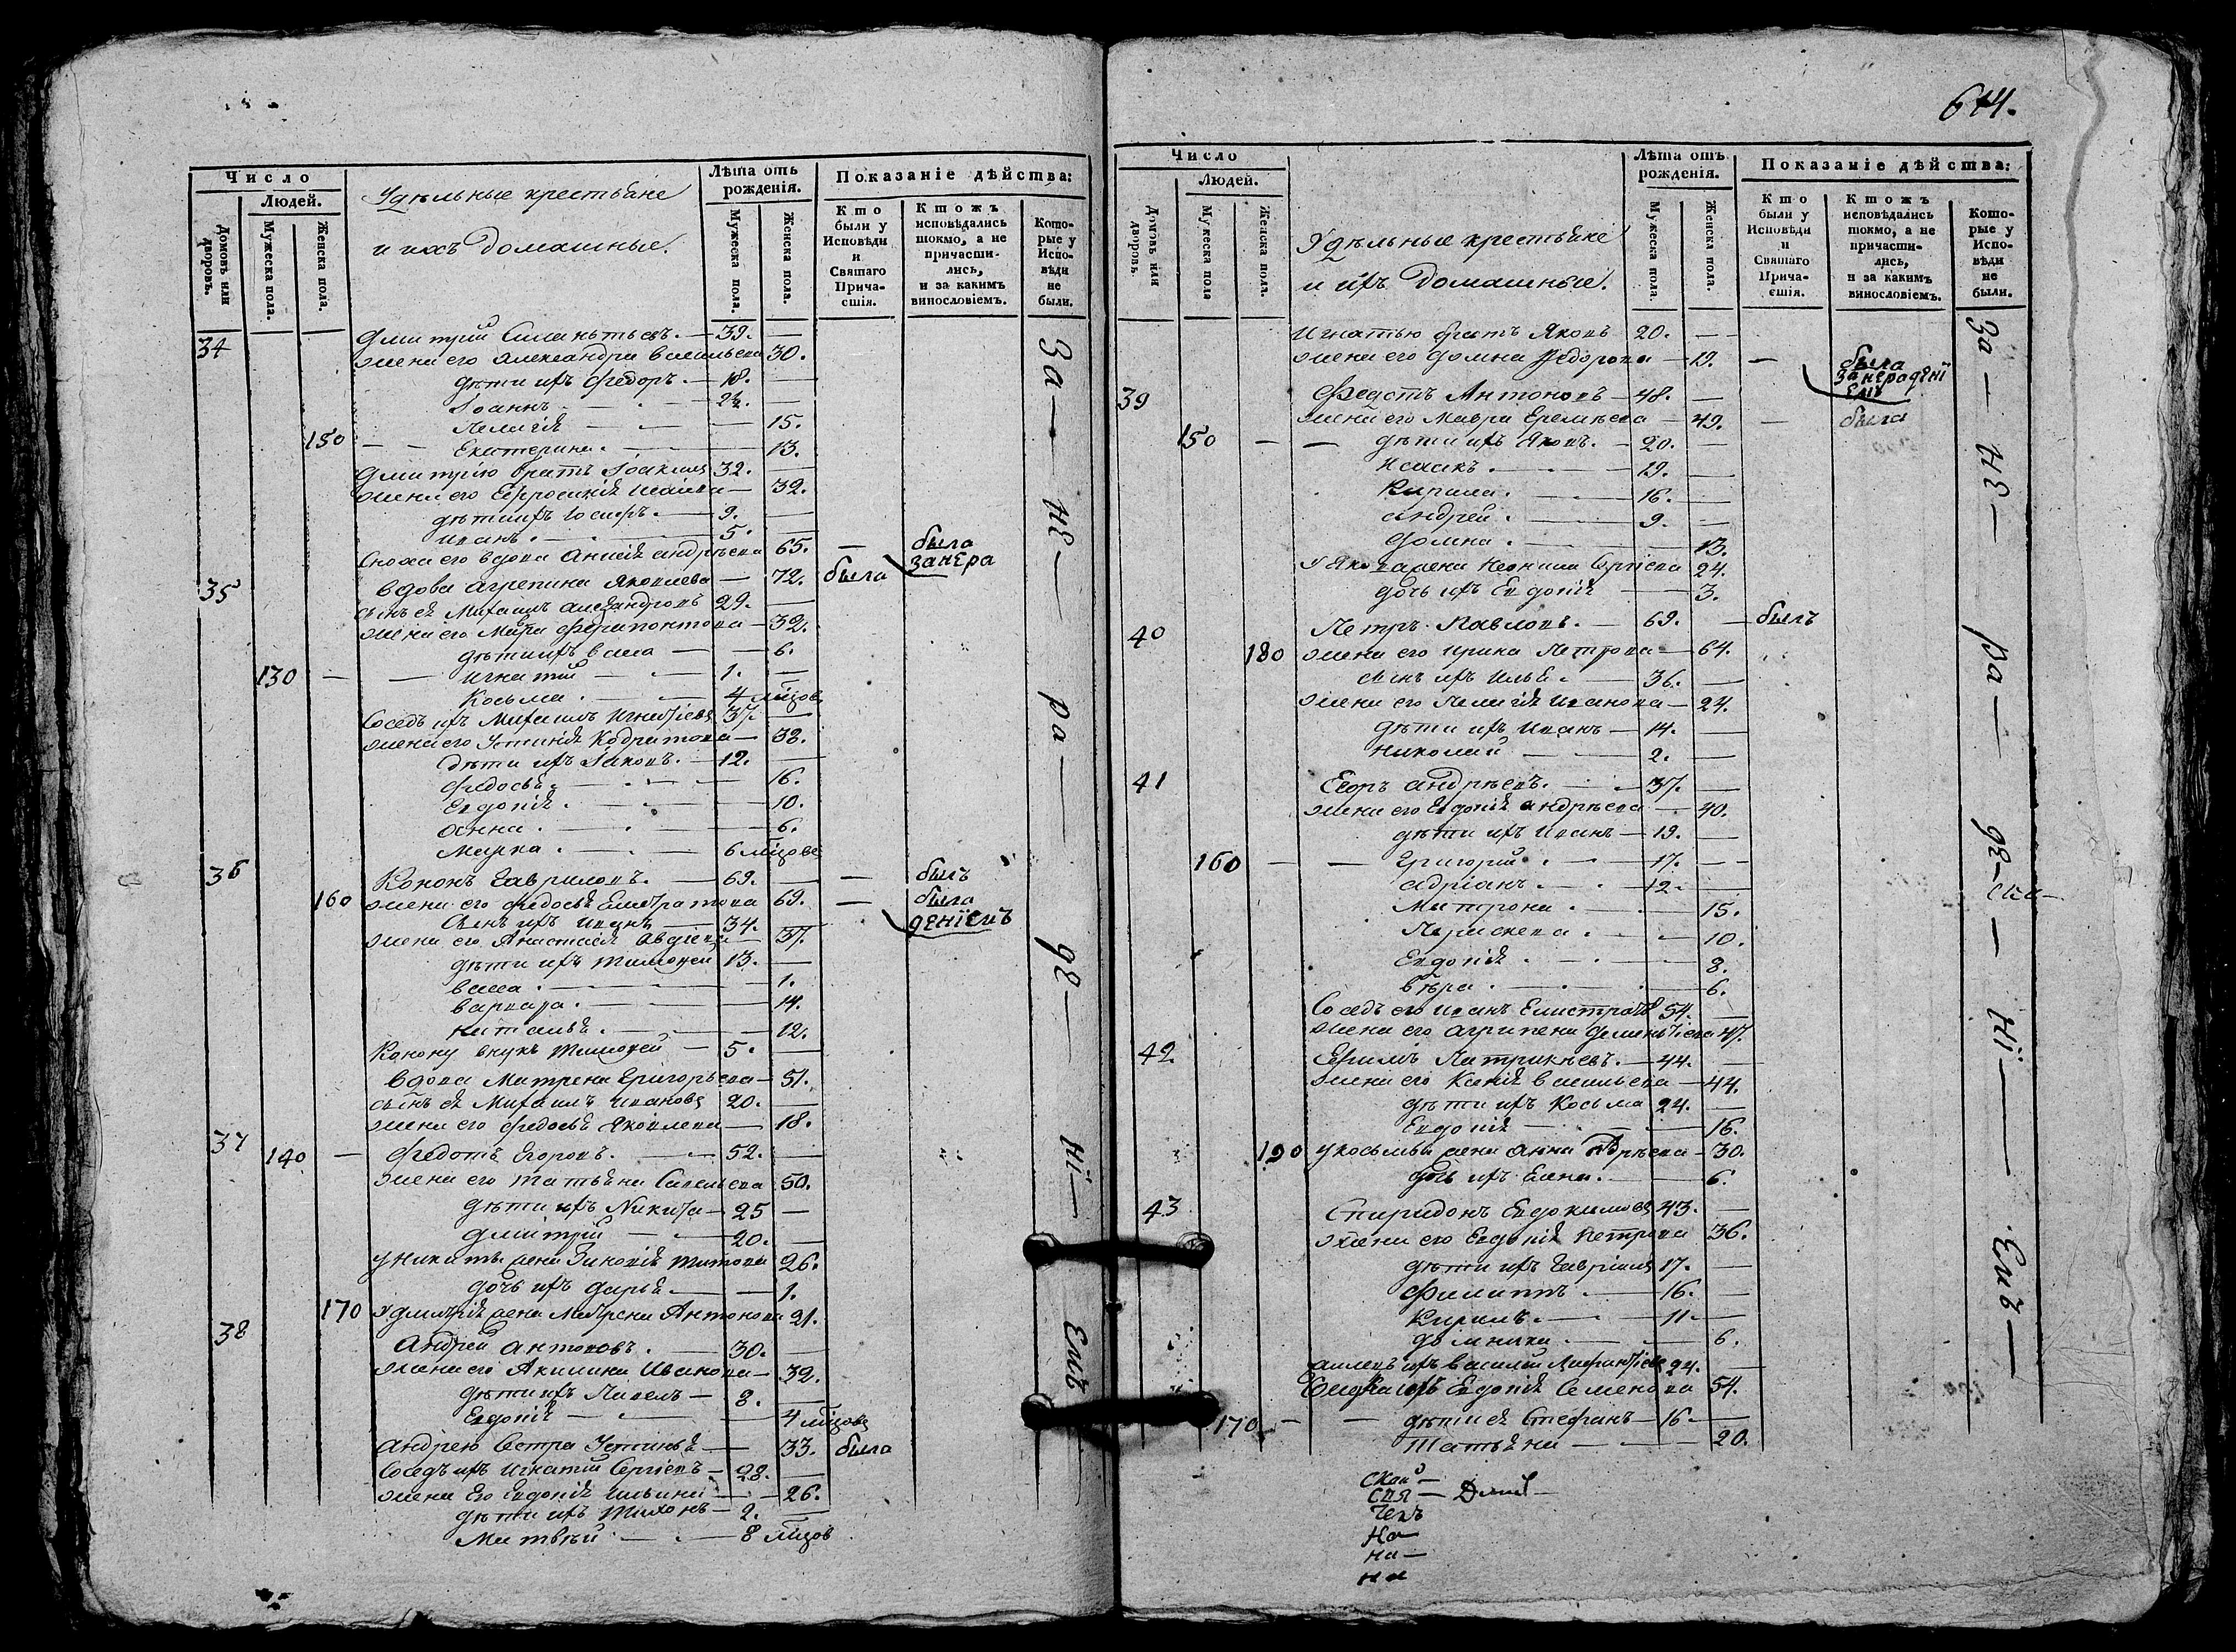 Число
Людей.
Домовъ или дворовъ.
Мужеска пола.
Женска пола.
Удѣльные крестьяне
и ихъ домашные.
Лѣта отъ рожденія.
Мужеска пола.
Женска пола.
Показаніе дѣйства:
Кто были у Исповѣди и Святаго Прича-стія.
Ктожъ исповѣдались токмо, а не причасти-лись, и за какимъ винословіемъ.
Кото-рые у Испо-вѣди не были.
34 Дмитрий — 39. —
жена его Александра Васильева 30.
дѣти ихъ Федоръ — 18. —
Іоаннъ —
Пелагія — 15.
150 — Екатерина — 13.
Дмитрію братъ Іоакимъ 32. —
жена его Ефросинія Исаіева — 32.
дѣти ихъ Іосифъ — 9. —
Иванъ — 5. —
Сноха его вдова Анисія Андрѣева 65. — была
занера
35 вдова Агрепина Яковлева — 72. была
сынъ ея Михаилъ Александровъ 29. —
жена его Мавра Ферапонтова — 32.
дѣти ихъ Васса — 6.
130 — Игнатий — 1. —
Косьма — 4 мѣсцовъ
Соседъ ихъ Михаилъ Игнатіевъ 37. —
жена его Устинія Кодратова — 38.
дѣти ихъ Іаковъ — 12. —
Федосья — 16.
Евдокія — 10.
Анна — 6.
Марка — 6 мѣсцовъ
36 Кононъ Гавриловъ — 69. — былъ
160 жена его Федосья Елистратова 69. — была
деніемъ
Сынъ ихъ Иванъ — 34. —
жена его Анастасія Авдіева — 37.
дѣти ихъ Тимофей 13. —
Васса — 1.
Варвара — 14.
Наталья — 12.
Конону внукъ Тимофей — 5. —
вдова Матрена Григорьева — 51.
сынъ ея Михаилъ Ивановъ 20. —
жена его Федосья Яковлева — 18.
37 140 — Федотъ Егоровъ — 52. —
жена его Татьяна Савельева 50.
дѣти ихъ Никита — 25 —
Дмитрий — 20. —
у Никиты жена Зиновія Титова 26.
дочь ихъ Дарья — 1.
170 у Дмитрія жена Матрена Антонова 21.
38 Андрей Антоновъ — 30. —
жена его Акилина Иванова — 32.
дѣти ихъ Павелъ — 8. —
Евдокія — 4 мѣсцовъ
Андрею Сестра Устинья — 33. была
Соседъ ихъ Игнатий Сергіевъ — 28. —
жена Его Евдокія Ильина — 26.
дѣти ихъ Тихонъ — 2. —
Матвѣй — 8 мѣсцов
За — не — ра — де — ні — Емъ
614.
Число
Людей.
Домовъ или дворовъ.
Мужеска пола
Женска пола.
Удѣльные крестьяне
и ихъ домашные.
Лѣта отъ рожденія.
Мужеска пола.
Женска пола.
Показаніе дѣйства:
Кто были у Исповѣди и Святаго Прича-стія.
Ктожъ исповѣдались токмо, а не причасти-лись, и за какимъ винословіемъ.
Кото-рые у Испо-вѣди не были.
Игнатью братъ Яковъ 20. —
жена его Домна Федорова — 19. — была
занерадені
Емъ
39 Федотъ Антоновъ — 48. —
жена его Мавра Еремѣева — 49. — была
150 — дѣти ихъ Яковъ — 20. —
Исаакъ — 19. —
Кирила — 16. —
Андрей — 9. —
Домна — 13.
У Якова жена Неонила Сергіева 24.
дочь ихъ Евдокія — 3.
40 Петръ Павловъ — 69. — былъ
180 жена его Ирина Петрова — 64.
сынъ ихъ Илья — 36. —
жена его Пелагія Иванова — 24.
дѣти ихъ Иванъ — 14. —
Николай — 2. —
41 Егоръ Андрѣевъ — 37. —
жена его Евдокія Андрѣева — 40.
дѣти ихъ Иванъ — 19. —
160 — Григорий — 17. —
Адріанъ — 12. —
Матрона — 15.
Параскева — 10.
Евдокія — 8.
Вѣра — 6.
Соседъ его Иванъ Елистратовъ 54. —
жена его Агрипена Дементіева 47.
42 Ефимъ Патрикѣевъ — 44. —
жена его Ксенія Васильева — 44.
дѣти ихъ Косьма 24. —
Евдокія — 16.
190 у Косьмы жена Анна — 30.
дочь ихъ Елена — 6.
43 Спиридонъ Евдокимовъ 43. —
жена его Евдокія Петрова 36.
дѣти ихъ Гавріилъ 17. —
Филиппъ — 16. —
Кирилъ — 11 —
Домника — 6.
ихъ Василий 24. —
Евдокія Семенова 54.
170 — дѣти ея Стефанъ — 16. —
Татьяна — 20.
За — не — ра — де — ні — Емъ —